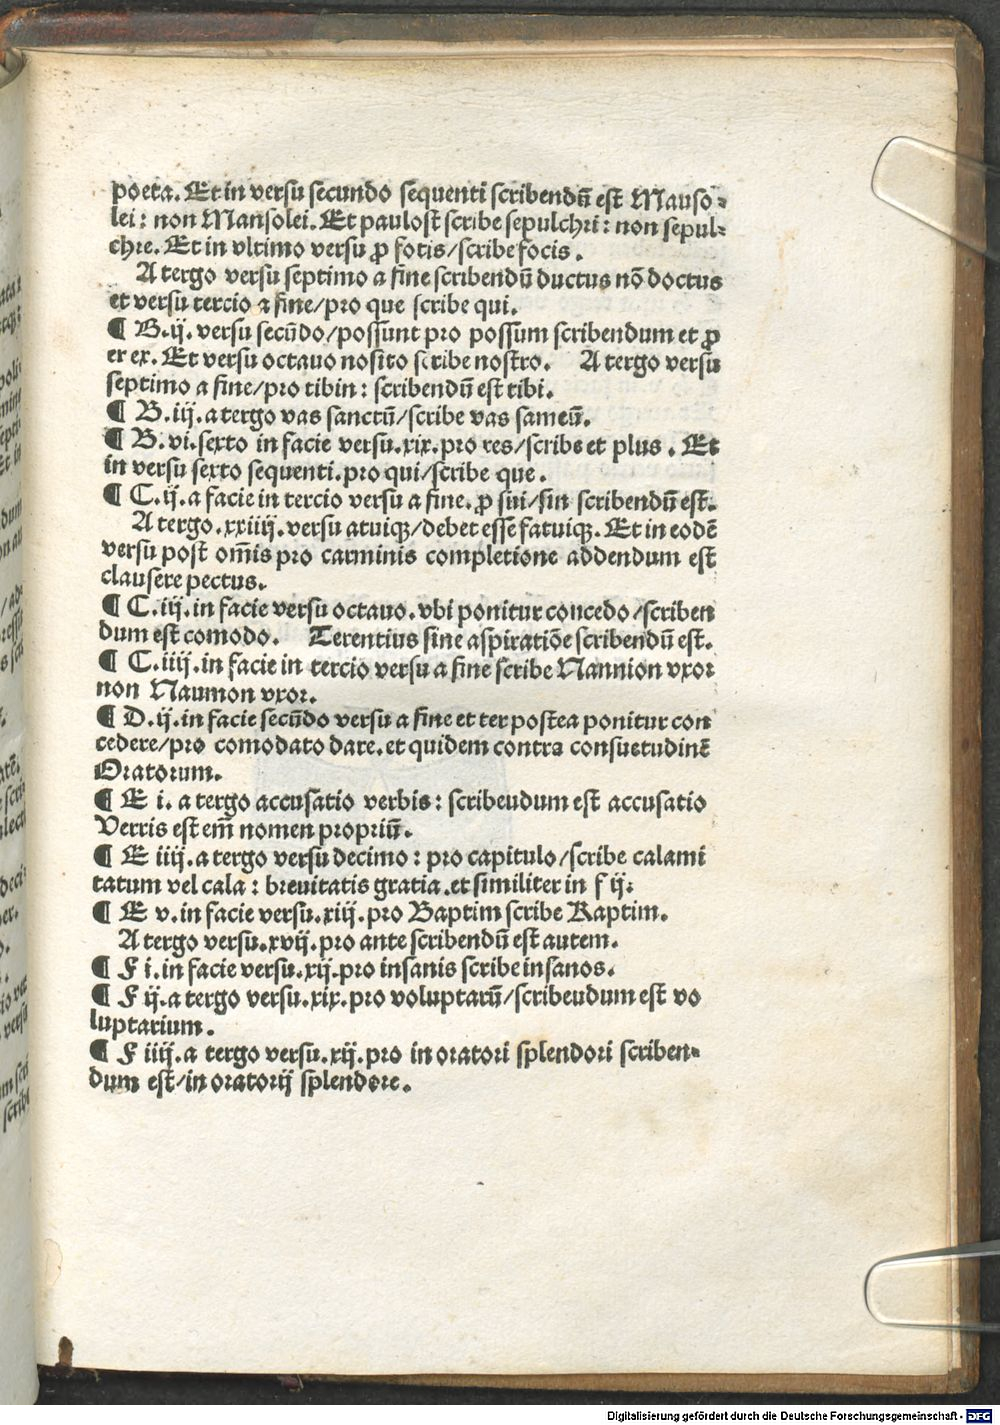 poeta. Et in versu secundo sequenti scribendū est Mauso-
lei: non Mansolei. Et paulost scribe sepulchri: non sepul-
chre. Et in vltimo versu ꝓ fotis/scribe focis.
A tergo versu septimo a fine scribendū ductus nō doctus
et versu tercio a fine/pro que scribe qui.
¶ B.ij. versu secūdo/possunt pro possum scribendum et ꝓ
er ex. Et versu octauo nosito scribe nostro. A tergo versu
septimo a fine/pro tibin: scribendū est tibi.
¶ B.iij.a tergo vas sanctū/scribe vas sameū.
¶ B.vi.sexto in facie versu.xix.pro res/scribe et plus. Et
in versu sexto sequenti.pro qui/scribe que.
¶ C.ij.a facie in tercio versu a fine.ꝓ sui/sin scribendū est.
A tergo.xxiiij.versu atuiqꝫ/debet esse fatuiqꝫ. Et in eodē
versu post om̄is pro carminis completione addendum est
clausere pectus.
¶ C.iij.in facie versu octauo.vbi ponitur concedo/scriben
dum est comodo. Terentius sine aspiratiōe scribendū est.
¶ C.iiij.in facie in tercio versu a fine scribe Nannion vxor
non Naumon vxor.
¶ D.ij.in facie secūdo versu a fine et ter postea ponitur con
cedere/pro comodato dare.et quidem contra consuetudinē
Oratorum.
¶ E i.a tergo accusatio verbis: scribeudum est accusatio
Verris est em̄ nomen propriū.
¶ E iiij.a tergo versu decimo: pro capitulo/scribe calami
tatum vel cala: breuitatis gratia.et similiter in f ij:
¶ E v.in facie versu.xiij.pro Baptim scribe Raptim.
A tergo versu.xvij.pro ante scribendū est autem.
¶ F i.in facie versu.xij.pro insanis scribe insanos.
¶ F ij.a tergo versu.xix.pro voluptarū/scribeudum est vo
luptarium.
¶ F iiij.a tergo versu.xij.pro in oratori splendori scriben-
dum est/in oratorij splendore.
Digitalisierung gefördert durch die Deutsche Forschungsgemeinschaft - DFG